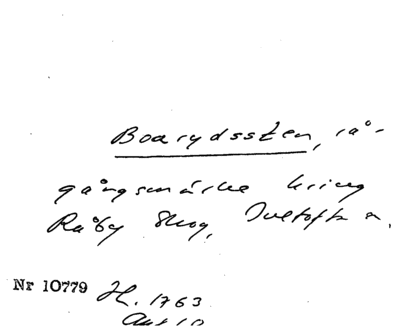 Boarydssten, rå-
gångsmärke kring
Råby Skog, Tultofta a.
Nr 10779 H. 1763
Akt 10